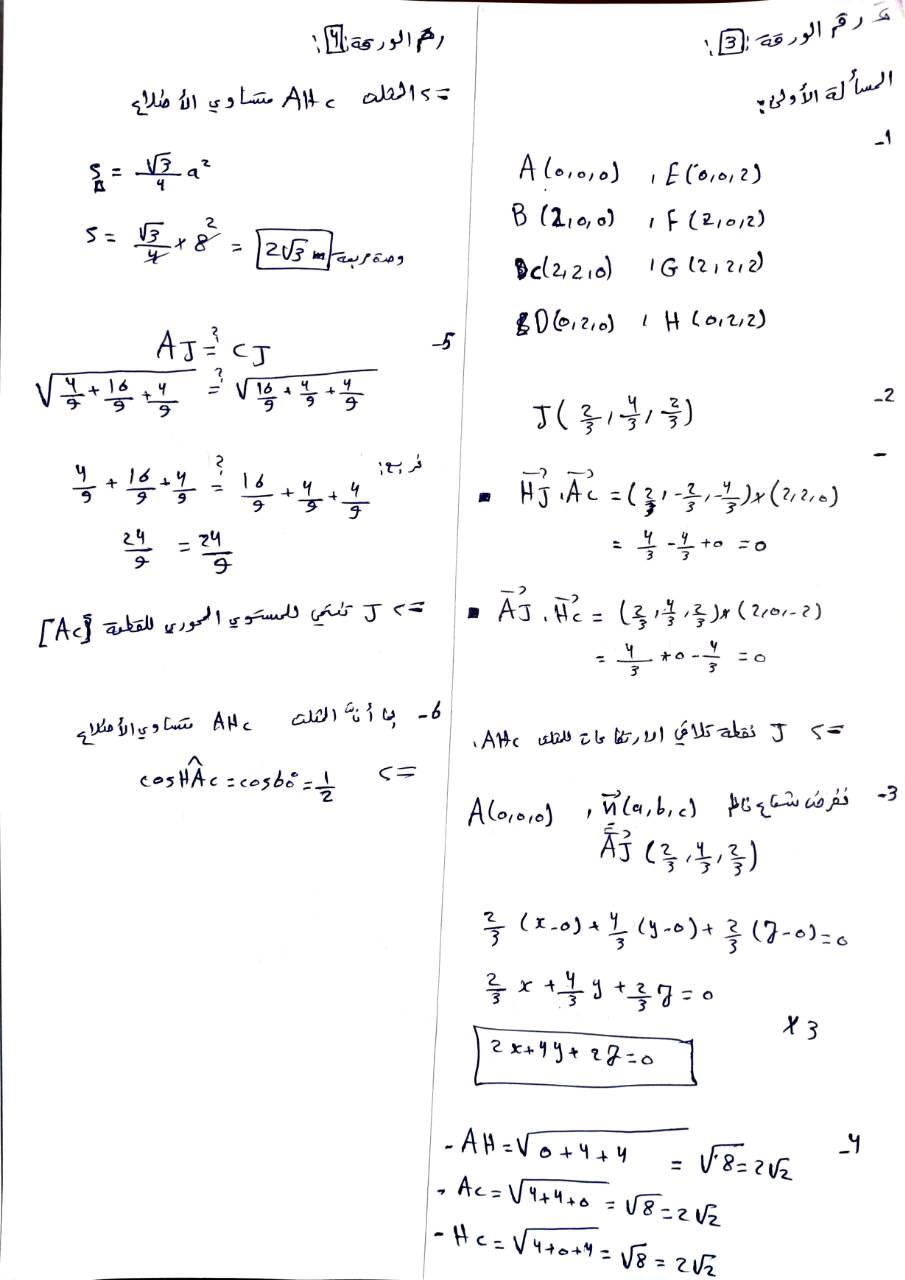 رقم الورقة: 3:
المسألة الأولى:
1-
A(0,0,0) , E(0,0,2)
B(2,0,0) , F(2,0,2)
C(2,2,0) , G(2,2,2)
D(0,2,0) , H(0,2,2)
2- J(2/3, 4/3, 2/3)
- HJ→ . AC→ = (2/3, -2/3, -4/3) × (2,2,0)
= 4/3 - 4/3 + 0 = 0
- AJ→ . HC→ = (2/3, 4/3, 2/3) × (2,0,-2)
= 4/3 + 0 - 4/3 = 0
=> J نقطة تلاقي الارتفاعات للمثلث AHC.
3- نفرض شعاع ناظم n→(a,b,c) , A(0,0,0)
AJ→ (2/3, 4/3, 2/3)
2/3 (x-0) + 4/3 (y-0) + 2/3 (z-0) = 0
2/3 x + 4/3 y + 2/3 z = 0
×3
2x+4y+2z=0
4- - AH = √0+4+4 = √8 = 2√2
- AC = √4+4+0 = √8 = 2√2
- HC = √4+0+4 = √8 = 2√2
رقم الورقة: 4:
=> المثلث AHC متساوي الأضلاع
S = √3/4 a²
S = √3/4 × 8² = 2√3 m وحدة مربعة
5- AJ ?= CJ
√4/9 + 16/9 + 4/9 ?= √16/9 + 4/9 + 4/9
نربع:
4/9 + 16/9 + 4/9 ?= 16/9 + 4/9 + 4/9
24/9 = 24/9
=> J تنتمي للمستوي المحوري للقطعة [AC]
6- بما أن المثلث AHC متساوي الأضلاع
=> cosHÂC = cos60° = 1/2